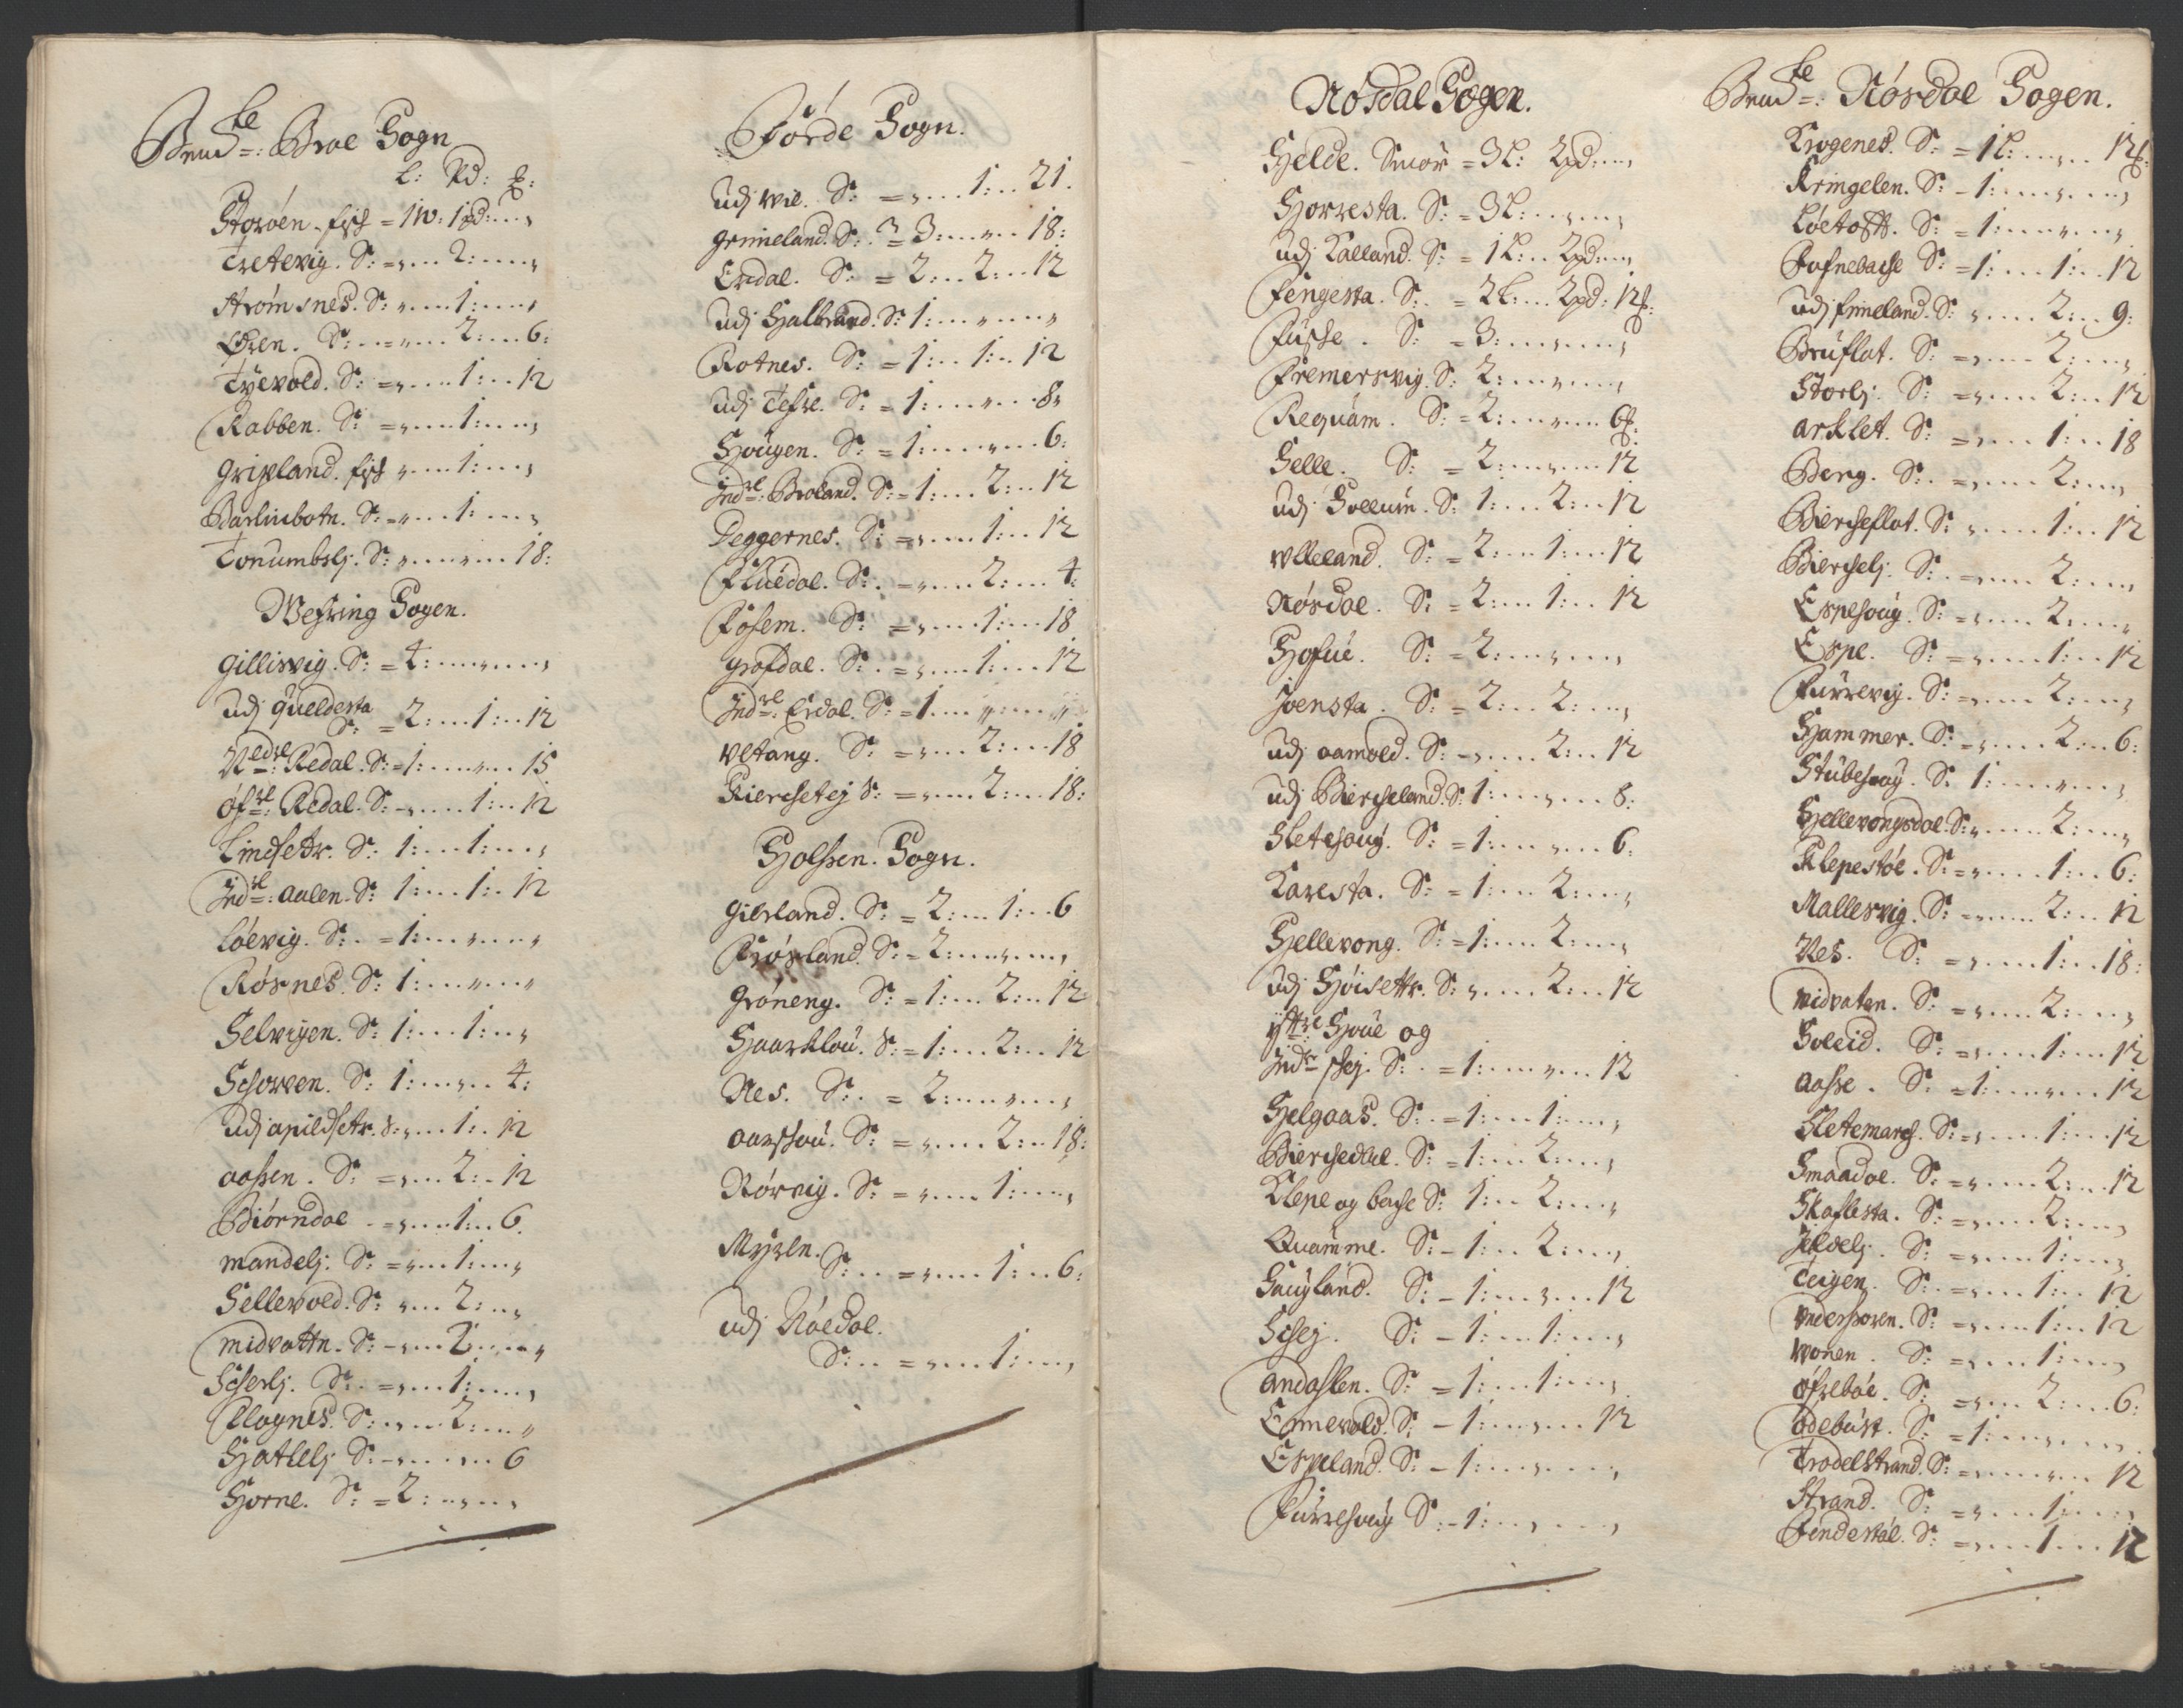 Bem:te Broe Sogn
L: Pd: ℔:
Storöen. fisk = 1W: 1pd: „
Tretevig. D: = „ 2: „
Strömsnes. D: „ 1: „
Øren. D: = „ 2: 6:
Tÿevold. D: = „ 1: 12
Rabben. D: = „ 1: „
Gripland. fisk „ 1: „
Barlinbotn. D: = „ 1: „
Tonumbslj. D: „ „ 18:
Wefring Sogen.
Gillisvig. D: = 4: „ „
Udj Queldesta
D: = 2: 1: 12
Nedre: Redal. D: = 1: „ 15
Öfre: Redal. D: – „ 1: 12
Lindsetr. D: 1: 1: „
Indre: Aalen. D: 1: 1: 12
Löevig. D: = 1: „ „
Rörnes. D: 1: „ „
Selvigen. D: 1: 1: „
Schorven. D: 1: „ 4:
Udj apildsetr. D: „ 1: 12
Aassen. D: = „ 2: 12
Biörndal = „ 1: 6.
Mandelj. D: = „ 1: „
Sellevold. D: „ 2: „
Midvattn. D: – „ 2: „
Scherlj. D: = „ 1: „
Klagnes. D: „ 2: „
Hatlelj D: – „ „ 6
Horne. D: = 2: „ „
Förde Sogn.
Udj Wie. D: = „ 1: 21.
Grimeland. D: = 3: „ 18:
Erdal. D: = 2: 2: 12
Udj Halbrand. D: 1: „ „
Rotnes. D: = 1: 1: 12
Udj Tefre. D: = 1: „ 8„
Hougen. D: = 1: „ 6:
Indre: Broland. D: = 1: 2: 12
Deggernes. D: = „ 1: 12
Fluedal. D: = „ 2: 4:
Fosem. D: = „ 1: 18
Grofdal. D: = „ 1: 12
Indre: Erdal. D: = 1. „ „
Vetang. D: = „ 2: 18
Kierchetej D: = „ 2: 18:
Holssen. Sogn.
Gierland. D: = 2: 1: 6
Frösland. D: = 2: „ „
Gröneng. D: = 1: 2: 12
Haarklou. D: = 1: 2: 12
Nes. D: = 2: „ „
Aarshou. D: = „ 2: 18:
Rörvig. D: = „ 1: „
Myren.
D: = „ 1: 6:
Udj Röedal.
D: = „ 1: „
Nösdal Sogen.
Hjelde. Smör = 3L: 2pd: „
Horresta. D: = 3L: „ „
Udj Kalland. D: = 1L: 2pd: „
Fengesta. D: = 2L: 2pd: 12℔:
Fusse. D: = 3: „ „
Fremersvig. D: 2: „ „
Requam. D: = 2: „ 6℔.
Selle. D: = 2: „ 12
Udj Sollum. D: 1: 2: 12
Ulleland. D: = 2: 1: 12
Nösdal. D: = 2: 1: 12
Hofue. D: = 2: „ „
Joensta. D: = 2: 2: „
Udj aamold. D: – „ 2: 12
Udj Bierchland. D: 1: „ 8:
Sletehoug. D: = 1: „ 6:
Karesta. D: = 1: 2: „
Hellevong. D: = 1: 2: „
Udj Höisettr. D: „ 2: 12
Yttre Houe og
Indr shej. D: = 1: „ 12
Helgaas. D: = 1: 1: „
Bierchedal. D: = 1: 2: „
Klepe og bache D: 1: 2: „
Quamme. D: – 1: 2: „
Haugland. D: – 1: „ 12
Schej. D: – 1: 1: „
Andahlen. D: = 1: 1: „
Emevold. D: – 1: „ 12
Espeland. D: – 1: „ „
Furrehoug D: – 1: „ „
Bem:te Nösdal Sogen.
Krogenes. D: = 1L: „ 12℔:
Kringelen. D: – 1: „ „
Löetoft. D: = 1: „ „
Fafnebache D: = 1: 1: 12
Udj fimeland. D: „ 2: 9:
Bruflat. D: = „ 2: „
Storlj. D: = „ 2: 12
Arklet. D: = „ 1: 18
Berg. D: = „ 2: „
Biercheflat. D: „ 1: 12
Bierchelj. D: = „ 2: „
Espehoug. D: = „ 2: „
Espe. D: = „ 1: 12
Furrevig. D: = „ 2: „
Hammer. D: = „ 2: 6:
Stubehoug. D: 1: „ „
Hellevongsdal. D: „ 2: „
Klepestöe. D: = „ 1: 6:
Mallesvig. D: = „ 2: 12
Nes. D: = „ 1: 18:
Midvaten. D: = „ 2: „
Soleid. D: = „ 1: 12
Aasse. D: = 1: „ 12
Sletemarch. D: = „ 1: 12
Smaadal. D: = „ 2: 12
Skaflesta. D: = „ 2: „
Jeldelj. D: = „ 1: „
Teigen. D: = „ 1: 12
Undershoren. D: = „ 1: 12
Vonen. D: = „ 1: „
Öfreböe. D: = „ 2: 6:
Odebust. D: = 1: „ „
Trodelstrand. D: = „ „ 12
Strand. D: = „ 1: „
Föndestöl. D: = „ 1: 12